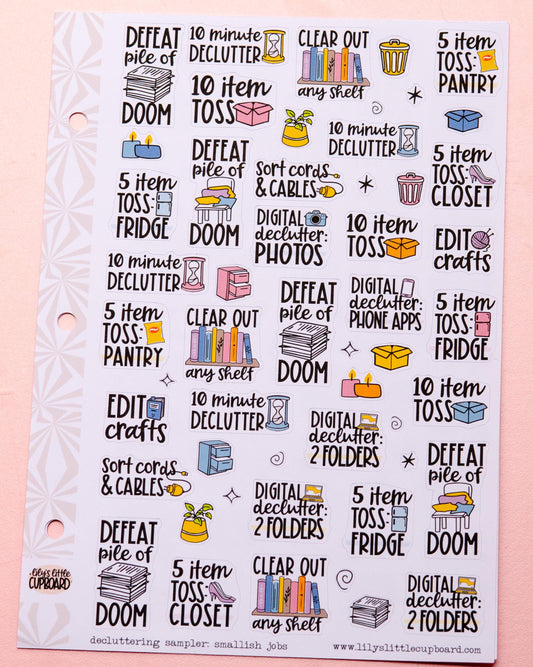 DEFEAT
pile of
DOOM
10 minute
DECLUTTER
CLEAR OUT
any shelf
5 item
TOSS:
PANTRY
10 item
TOSS
10 minute
DECLUTTER
DEFEAT
pile of
DOOM
Sort cords
& CABLES
5 item
TOSS:
CLOSET
5 item
TOSS:
FRIDGE
DIGITAL
declutter:
PHOTOS
10 item
TOSS
EDIT
crafts
10 minute
DECLUTTER
DEFEAT
pile of
DOOM
DIGITAL
declutter:
PHONE APPS
5 item
TOSS:
FRIDGE
5 item
TOSS:
PANTRY
CLEAR OUT
any shelf
10 item
TOSS
EDIT
crafts
10 minute
DECLUTTER
DIGITAL
declutter:
2 FOLDERS
DEFEAT
pile of
DOOM
Sort cords
& CABLES
DIGITAL
declutter:
2 FOLDERS
5 item
TOSS:
FRIDGE
DEFEAT
pile of
DOOM
5 item
TOSS:
CLOSET
CLEAR OUT
any shelf
DIGITAL
declutter:
2 FOLDERS
lily's little
CUPBOARD
decluttering sampler: smallish jobs
www.lilyslittlecupboard.com